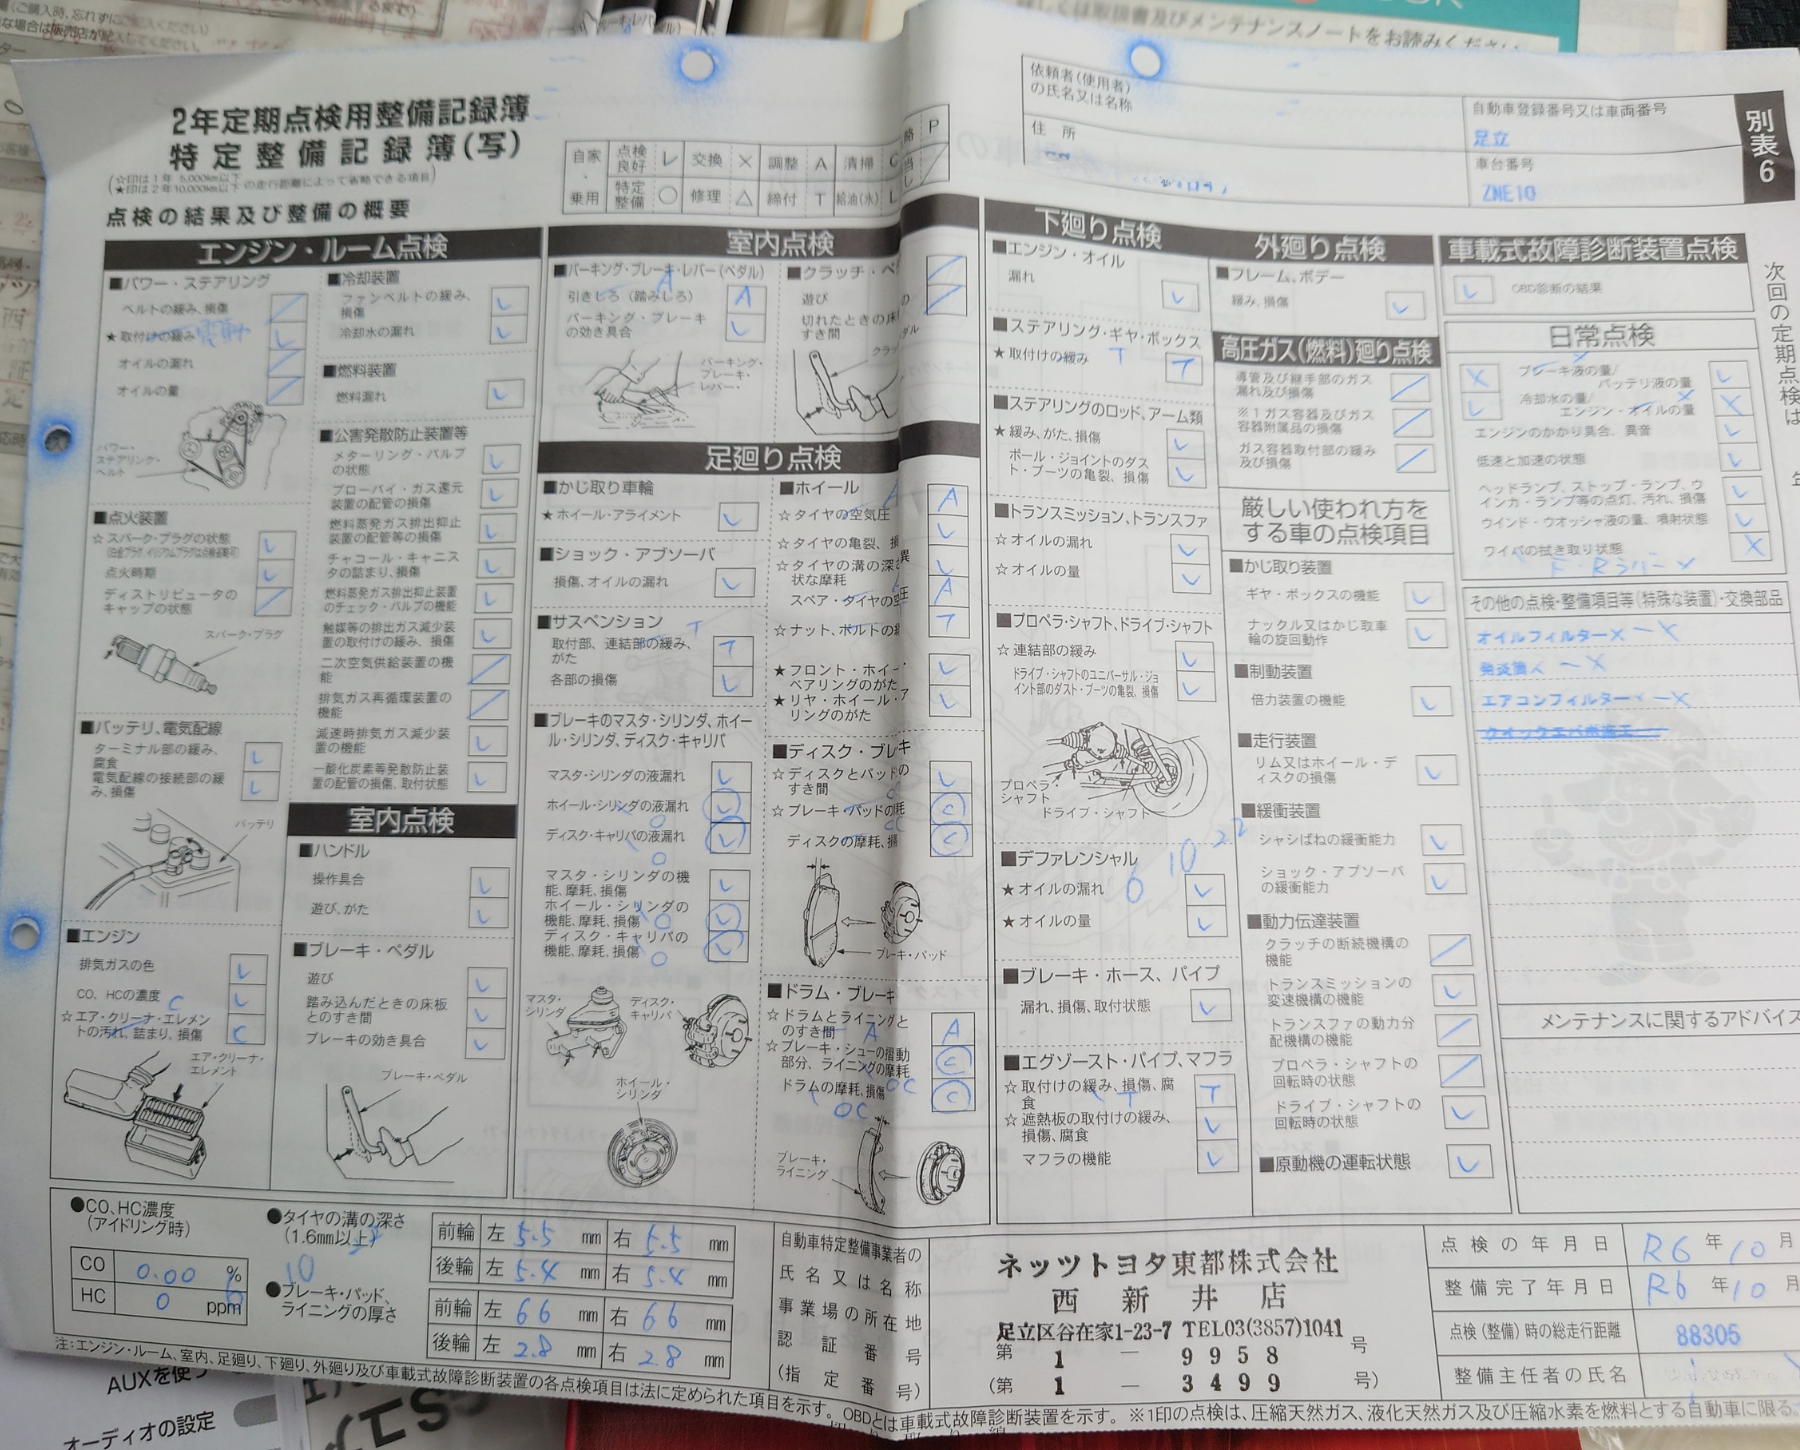 2年定期点検用整備記録簿
特定整備記録簿(写)
(☆印は1年 5,000km以下
★印は2年10,000km以下 の走行距離によって省略できる項目)
点検の結果及び整備の概要
自家・乗用
点検良好 レ 交換 × 調整 A 清掃
特定整備 ○ 修理 △ 締付 T 給油(水) L
P
依頼者(使用者)
の氏名又は名称
住 所
自動車登録番号又は車両番号
足立
車台番号
ZNE10
別表6
エンジン・ルーム点検
■パワー・ステアリング
ベルトの緩み、損傷
★取付けの緩み 電動
オイルの漏れ
オイルの量
パワー・
ステアリング・
ベルト
■点火装置
☆スパーク・プラグの状態
点火時期
ディストリビュータの
キャップの状態
スパーク・プラグ
■バッテリ、電気配線
ターミナル部の緩み、
腐食
電気配線の接続部の緩
み、損傷
バッテリ
■エンジン
排気ガスの色
CO、HCの濃度
☆エア・クリーナ・エレメン
トの汚れ、詰まり、損傷 C
エア・クリーナ・
エレメント
■冷却装置
ファンベルトの緩み、
損傷
冷却水の漏れ
■燃料装置
燃料漏れ
■公害発散防止装置等
メターリング・バルブ
の状態
ブローバイ・ガス還元
装置の配管の損傷
燃料蒸発ガス排出抑止
装置の配管等の損傷
チャコール・キャニス
タの詰まり、損傷
燃料蒸発ガス排出抑止装置
のチェック・バルブの機能
触媒等の排出ガス減少装
置の取付けの緩み、損傷
二次空気供給装置の機
能
排気ガス再循環装置の
機能
減速時排気ガス減少装
置の機能
一酸化炭素等発散防止装
置の配管の損傷、取付状態
室内点検
■ハンドル
操作具合
遊び、がた
■ブレーキ・ペダル
遊び
踏み込んだときの床板
とのすき間
ブレーキの効き具合
ブレーキ・ペダル
室内点検
■パーキング・ブレーキ・レバー(ペダル)
引きしろ(踏みしろ) A
パーキング・ブレーキ
の効き具合
パーキング・
ブレーキ・
レバー・
■クラッチ・
遊び
切れたときの床
すき間
足廻り点検
■かじ取り車輪
★ホイール・アライメント
■ショック・アブソーバ
損傷、オイルの漏れ
■サスペンション
取付部、連結部の緩み、
がた T
各部の損傷
■ブレーキのマスタ・シリンダ、ホイー
ル・シリンダ、ディスク・キャリパ
マスタ・シリンダの液漏れ
ホイール・シリンダの液漏れ
ディスク・キャリパの液漏れ
マスタ・シリンダの機
能、摩耗、損傷
ホイール・シリンダの
機能、摩耗、損傷
ディスク・キャリパの
機能、摩耗、損傷
マスタ・
シリンダ
ディスク・
キャリパ
ホイール・
シリンダ
■ホイール
☆タイヤの空気圧 A
☆タイヤの亀裂、損
☆タイヤの溝の深さ
状な摩耗
スペア・タイヤの空 A
☆ナット、ボルトの緩 T
★フロント・ホイー
ベアリングのがた
★リヤ・ホイール・
リングのがた
■ディスク・ブレキ
☆ディスクとパッドの
すき間
☆ブレーキ・パッドの耗 C
ディスクの摩耗、損 C
ブレーキ・パッド
■ドラム・ブレーキ
☆ドラムとライニングと
のすき間 A
☆ブレーキ・シューの摺動
部分、ライニングの摩耗 C
ドラムの摩耗、損傷 C
ブレーキ・
ライニング
下廻り点検
■エンジン・オイル
漏れ
■ステアリング・ギヤ・ボックス
★取付けの緩み T T
■ステアリングのロッド、アーム類
★緩み、がた、損傷
ボール・ジョイントのダス
ト・ブーツの亀裂、損傷
■トランスミッション、トランスファ
☆オイルの漏れ
☆オイルの量
■プロペラ・シャフト、ドライブ・シャフト
☆連結部の緩み
ドライブ・シャフトのユニバーサル・ジョ
イント部のダスト・ブーツの亀裂、損傷
プロペラ・
シャフト
ドライブ・シャフト
■デファレンシャル
★オイルの漏れ
★オイルの量
■ブレーキ・ホース、パイプ
漏れ、損傷、取付状態
■エグゾースト・パイプ、マフラ
☆取付けの緩み、損傷、腐
食 T
☆遮熱板の取付けの緩み、
損傷、腐食
マフラの機能
外廻り点検
■フレーム、ボデー
緩み、損傷
高圧ガス(燃料)廻り点検
導管及び継手部のガス
漏れ及び損傷
※1ガス容器及びガス
容器附属品の損傷
ガス容器取付部の緩み
及び損傷
厳しい使われ方を
する車の点検項目
■かじ取り装置
ギヤ・ボックスの機能
ナックル又はかじ取車
輪の旋回動作
■制動装置
倍力装置の機能
■走行装置
リム又はホイール・デ
ィスクの損傷
■緩衝装置
シャシばねの緩衝能力
ショック・アブソーバ
の緩衝能力
■動力伝達装置
クラッチの断続機構の
機能
トランスミッションの
変速機構の機能
トランスファの動力分
配機構の機能
プロペラ・シャフトの
回転時の状態
ドライブ・シャフトの
回転時の状態
■原動機の運転状態
車載式故障診断装置点検
OBD診断の結果
日常点検
ブレーキ液の量/
バッテリ液の量
冷却水の量/
エンジン・オイルの量
エンジンのかかり具合、異音
低速と加速の状態
ヘッドランプ、ストップ・ランプ、ウ
インカ・ランプ等の点灯、汚れ、損傷
ウインド・ウオッシャ液の量、噴射状態
ワイパの拭き取り状態
その他の点検・整備項目等(特殊な装置)・交換部品
オイルフィルター× ー×
発炎筒× ー×
エアコンフィルター× ー×
メンテナンスに関するアドバイス
次回の定期点検は 年
●CO、HC濃度
(アイドリング時)
CO 0.00 %
HC 0 ppm
●タイヤの溝の深さ
(1.6mm以上)
前輪 左 5.5 mm 右 5.5 mm
後輪 左 5.4 mm 右 5.4 mm
●ブレーキ・パッド、
ライニングの厚さ
前輪 左 6.6 mm 右 6.6 mm
後輪 左 2.8 mm 右 2.8 mm
自動車特定整備事業者の
氏名又は名称
事業場の所在地
認証番号
(指定番号)
ネッツトヨタ東都株式会社
西新井店
足立区谷在家1-23-7 TEL03(3857)1041
第 1 - 9958 号
(第 1 - 3499 号)
点検の年月日 R6年10月
整備完了年月日 R6年10月
点検(整備)時の総走行距離 88305
整備主任者の氏名
注:エンジン・ルーム、室内、足廻り、下廻り、外廻り及び車載式故障診断装置の各点検項目は法に定められた項目を示す。OBDとは車載式故障診断装置を示す。※1印の点検は、圧縮天然ガス、液化天然ガス及び圧縮水素を燃料とする自動車に限る。
AUXを使
オーディオの設定